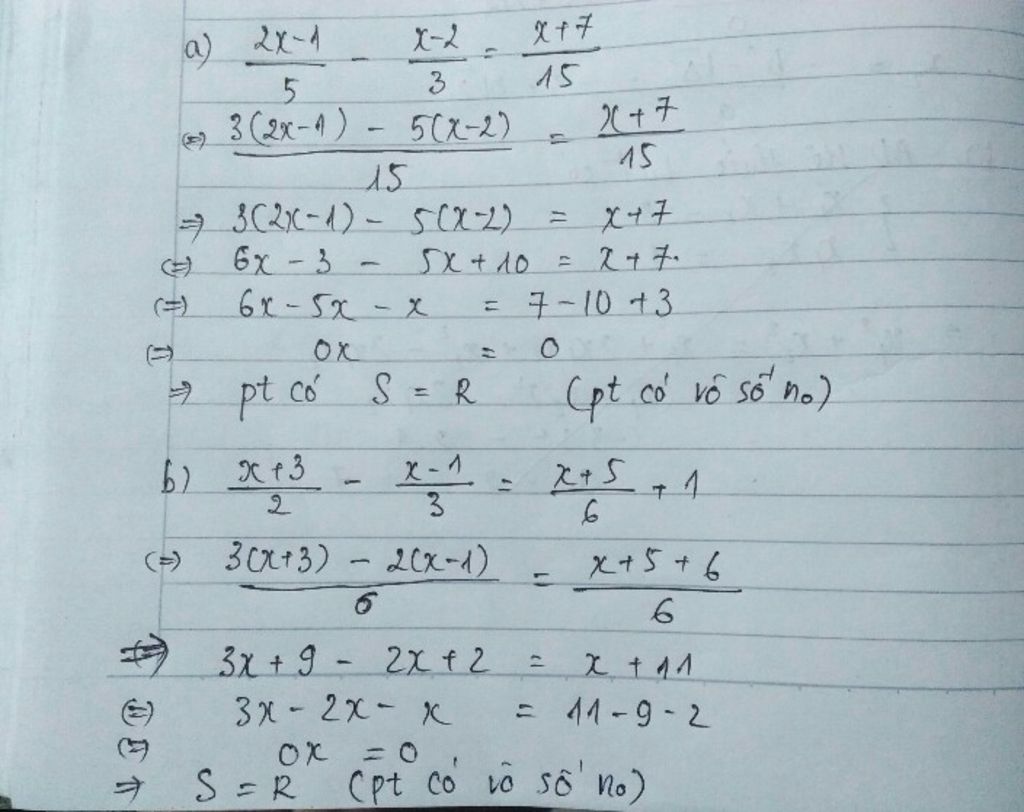 a) (2x-1)/5 - (x-2)/3 = (x+7)/15
⇔ (3(2x-1) - 5(x-2))/15 = (x+7)/15
⇒ 3(2x-1) - 5(x-2) = x+7
⇔ 6x - 3 - 5x + 10 = x + 7.
⇔ 6x - 5x - x = 7 - 10 + 3
⇔ 0x = 0
⇒ pt có S = R (pt có vô số no)
b) (x+3)/2 - (x-1)/3 = (x+5)/6 + 1
⇔ (3(x+3) - 2(x-1))/6 = (x+5+6)/6
⇔ 3x + 9 - 2x + 2 = x + 11
⇔ 3x - 2x - x = 11 - 9 - 2
⇔ 0x = 0
⇒ S = R (pt có vô số no)